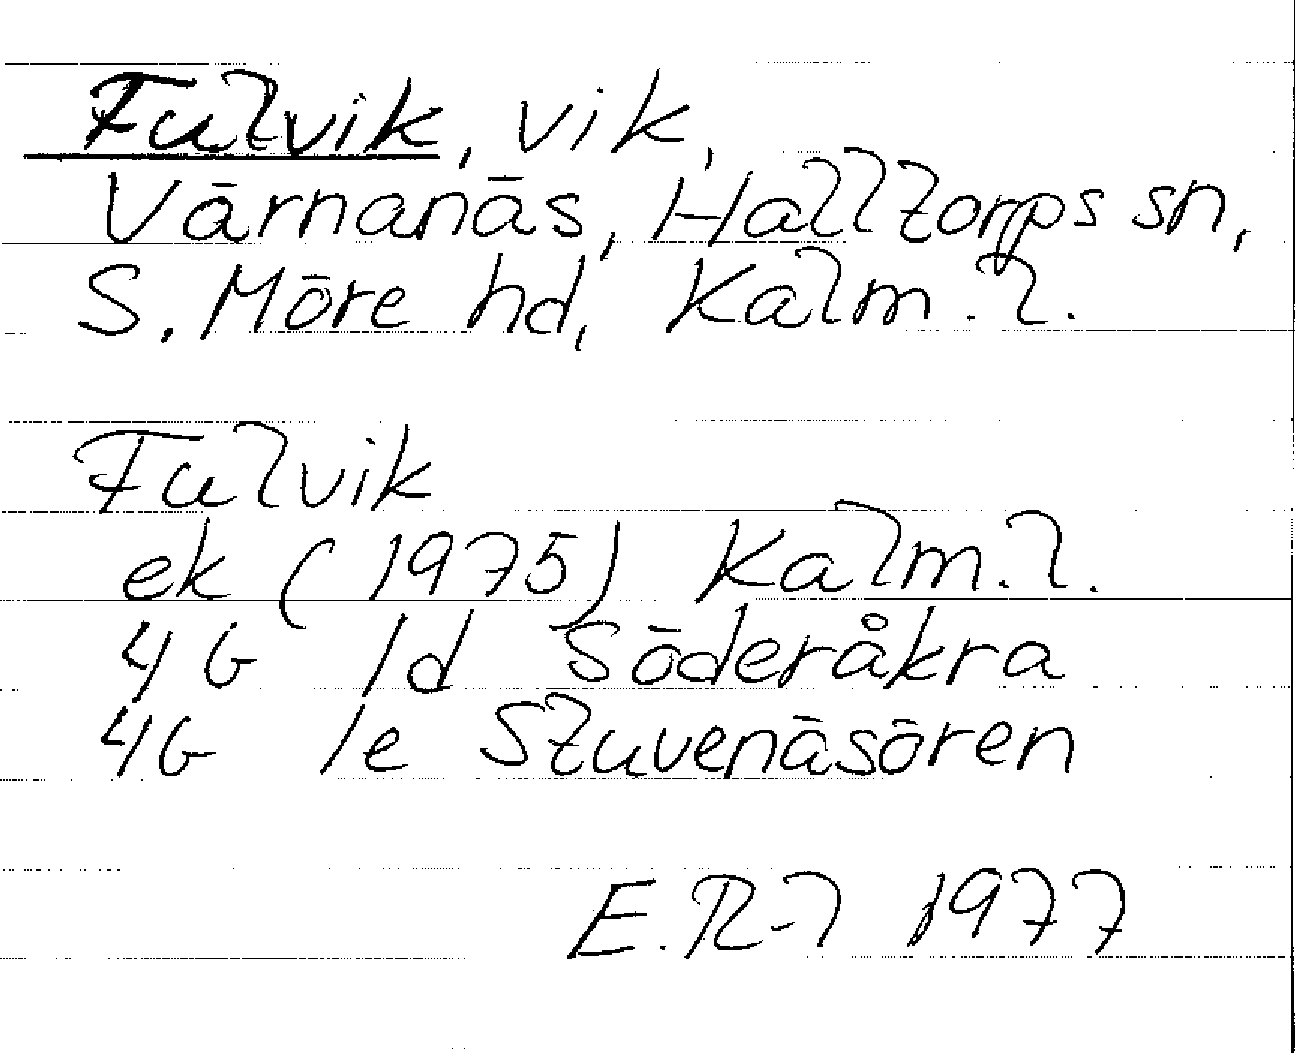 Fulvik, vik,
Värnanäs, Halltorps sn,
S. Möre hd, Kalm. l.
Fulvik
ek (1975) Kalm. l.
4G 1d Söderåkra
4G 1e Stuvenäsören
E. R-l 1977